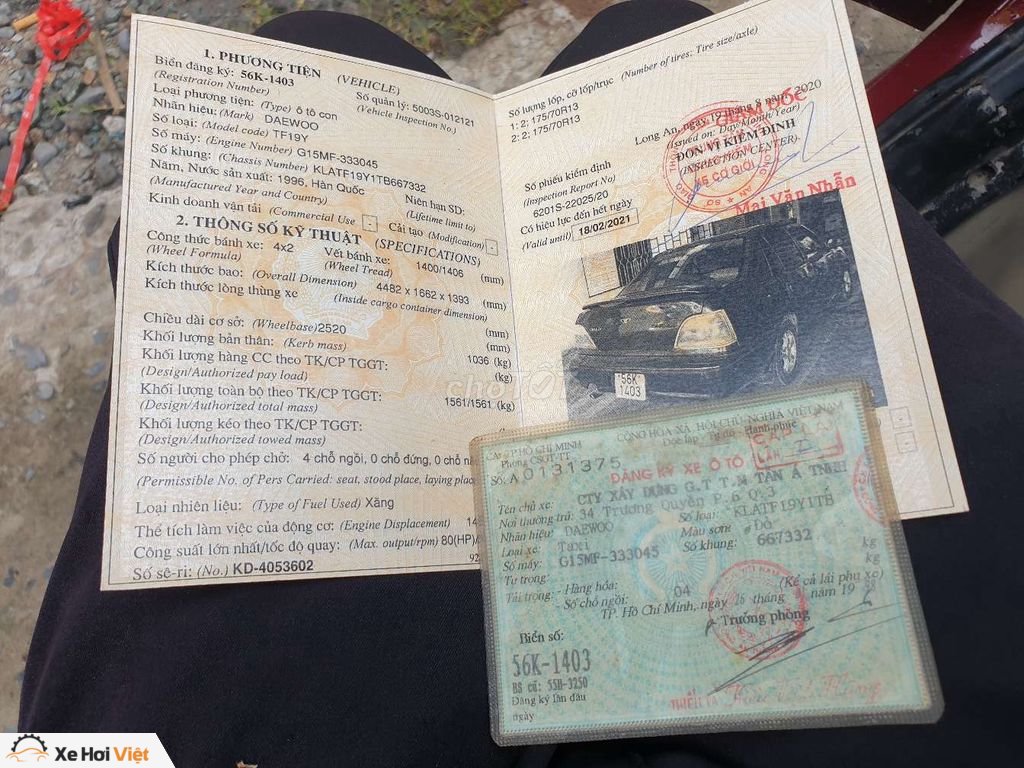 1. PHƯƠNG TIỆN (VEHICLE)
Biển đăng ký: 56K-1403 Số quản lý: 5003S-012121
(Registration Number) (Vehicle Inspection No.)
Loại phương tiện: (Type) ô tô con
Nhãn hiệu: (Mark) DAEWOO
Số loại: (Model code) TF19Y
Số máy: (Engine Number) G15MF-333045
Số khung: (Chassis Number) KLATF19Y1TB667332
Năm, Nước sản xuất: 1996, Hàn Quốc Niên hạn SD:
(Manufactured Year and Country) (Lifetime limit to)
Kinh doanh vận tải (Commercial Use - Cải tạo (Modification) -
2. THÔNG SỐ KỸ THUẬT (SPECIFICATIONS)
Công thức bánh xe: 4x2 Vết bánh xe: 1400/1406 (mm)
(Wheel Formula) (Wheel Tread)
Kích thước bao: (Overall Dimension) 4482 x 1662 x 1393 (mm)
Kích thước lòng thùng xe (Inside cargo container dimension)
(mm)
Chiều dài cơ sở: (Wheelbase)2520 (mm)
Khối lượng bản thân: (Kerb mass) 1036 (kg)
Khối lượng hàng CC theo TK/CP TGGT: (kg)
(Design/Authorized pay load)
Khối lượng toàn bộ theo TK/CP TGGT: 1561/1561 (kg)
(Design/Authorized total mass)
Khối lượng kéo theo TK/CP TGGT:
(Design/Authorized towed mass)
Số người cho phép chở: 4 chỗ ngồi, 0 chỗ đứng, 0 chỗ
(Permissible No. of Pers Carried: seat, stood place, laying place
Loại nhiên liệu: (Type of Fuel Used) Xăng
Thể tích làm việc của động cơ: (Engine Displacement) 14
Công suất lớn nhất/tốc độ quay: (Max. output/rpm) 80(HP)/
Số sê-ri: (No.) KD-4053602
Số lượng lốp, cỡ lốp/trục (Number of tires; Tire size/axle)
1: 2; 175/70R13
2: 2; 175/70R13
Long An, ngày 19 tháng 8 năm 2020
(Issued on: Day/Month/Year)
ĐƠN VỊ KIỂM ĐỊNH
(INSPECTION CENTER)
GIÁM ĐỐC
XE CƠ GIỚI
Mai Văn Nhẫn
Số phiếu kiểm định
(Inspection Report No)
6201S-22025/20
Có hiệu lực đến hết ngày
(Valid until) 18/02/2021
56K
1403
chợTỐT
CỘNG HÒA XÃ HỘI CHỦ NGHĨA VIỆT NAM
Độc lập - Tự do - Hạnh phúc
CA TP HỒ CHÍ MINH
Phòng CSGT-TT
Số: A 0131375
CẤP LẠI
LẦN I
ĐĂNG KÝ XE Ô TÔ
Tên chủ xe: CTY XÂY DỰNG G.T T.M TÂN Á TNHH
Nơi thường trú: 34 Trương Quyền P.6 Q.3
Nhãn hiệu: DAEWOO Số loại: KLATF19Y1TB
Loại xe: Taxi Màu sơn: Đỏ
Số máy: G15MF-333045 Số khung: 667332
Tự trọng: kg
Tải trọng: - Hàng hóa: kg
- Số chỗ ngồi: 04 (Kể cả lái phụ xe)
TP. Hồ Chí Minh, ngày 16 tháng năm 19
Trưởng phòng
Biển số:
56K-1403
BS cũ: 55H-3250
Đăng ký lần đầu
ngày
Xe Hơi Việt